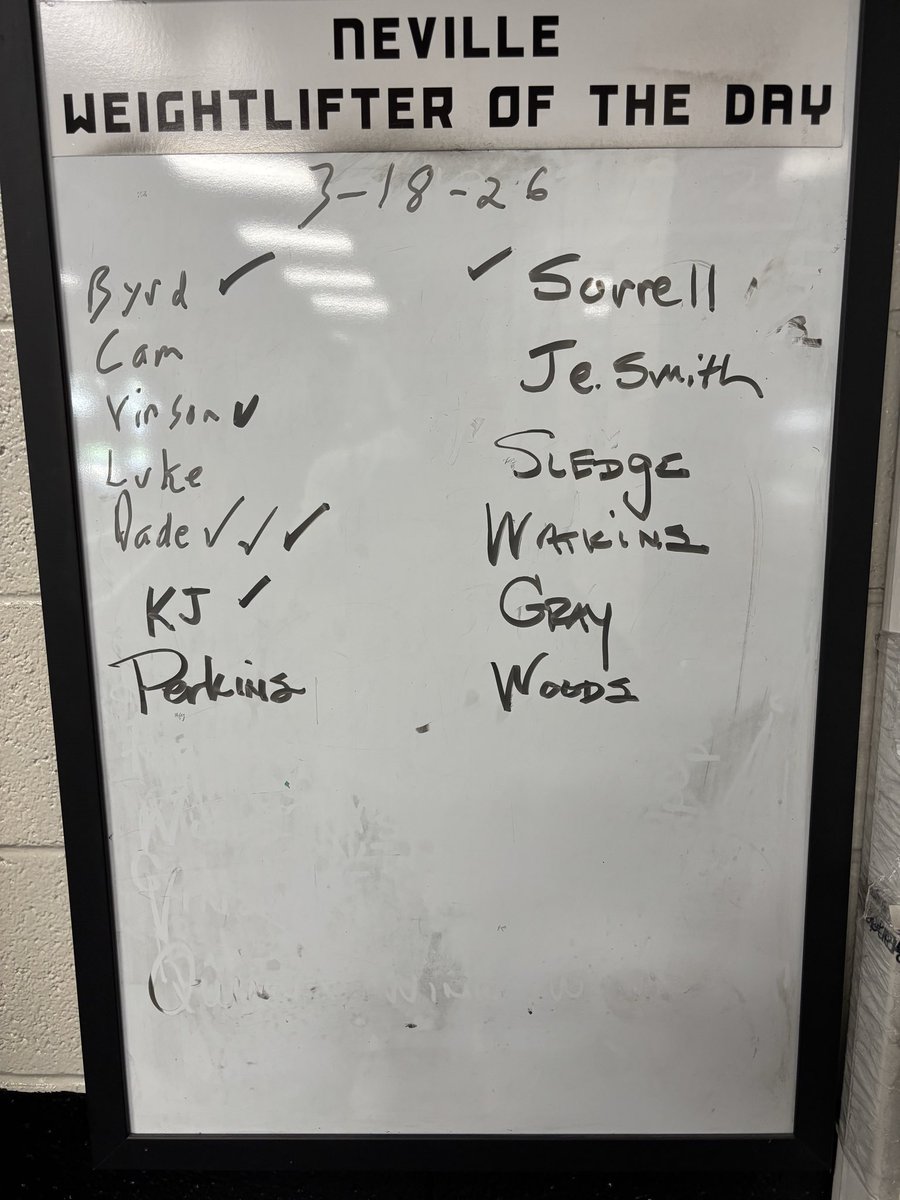 NEVILLE
WEIGHTLIFTER OF THE DAY
3-18-26
Byrd ✓
Cam
Vinson ✓
Luke
Dade ✓ ✓ ✓
KJ ✓
Perkins
✓ Sorrell
Je. Smith
SLEDgE
WATKINS
GRAY
WOODS